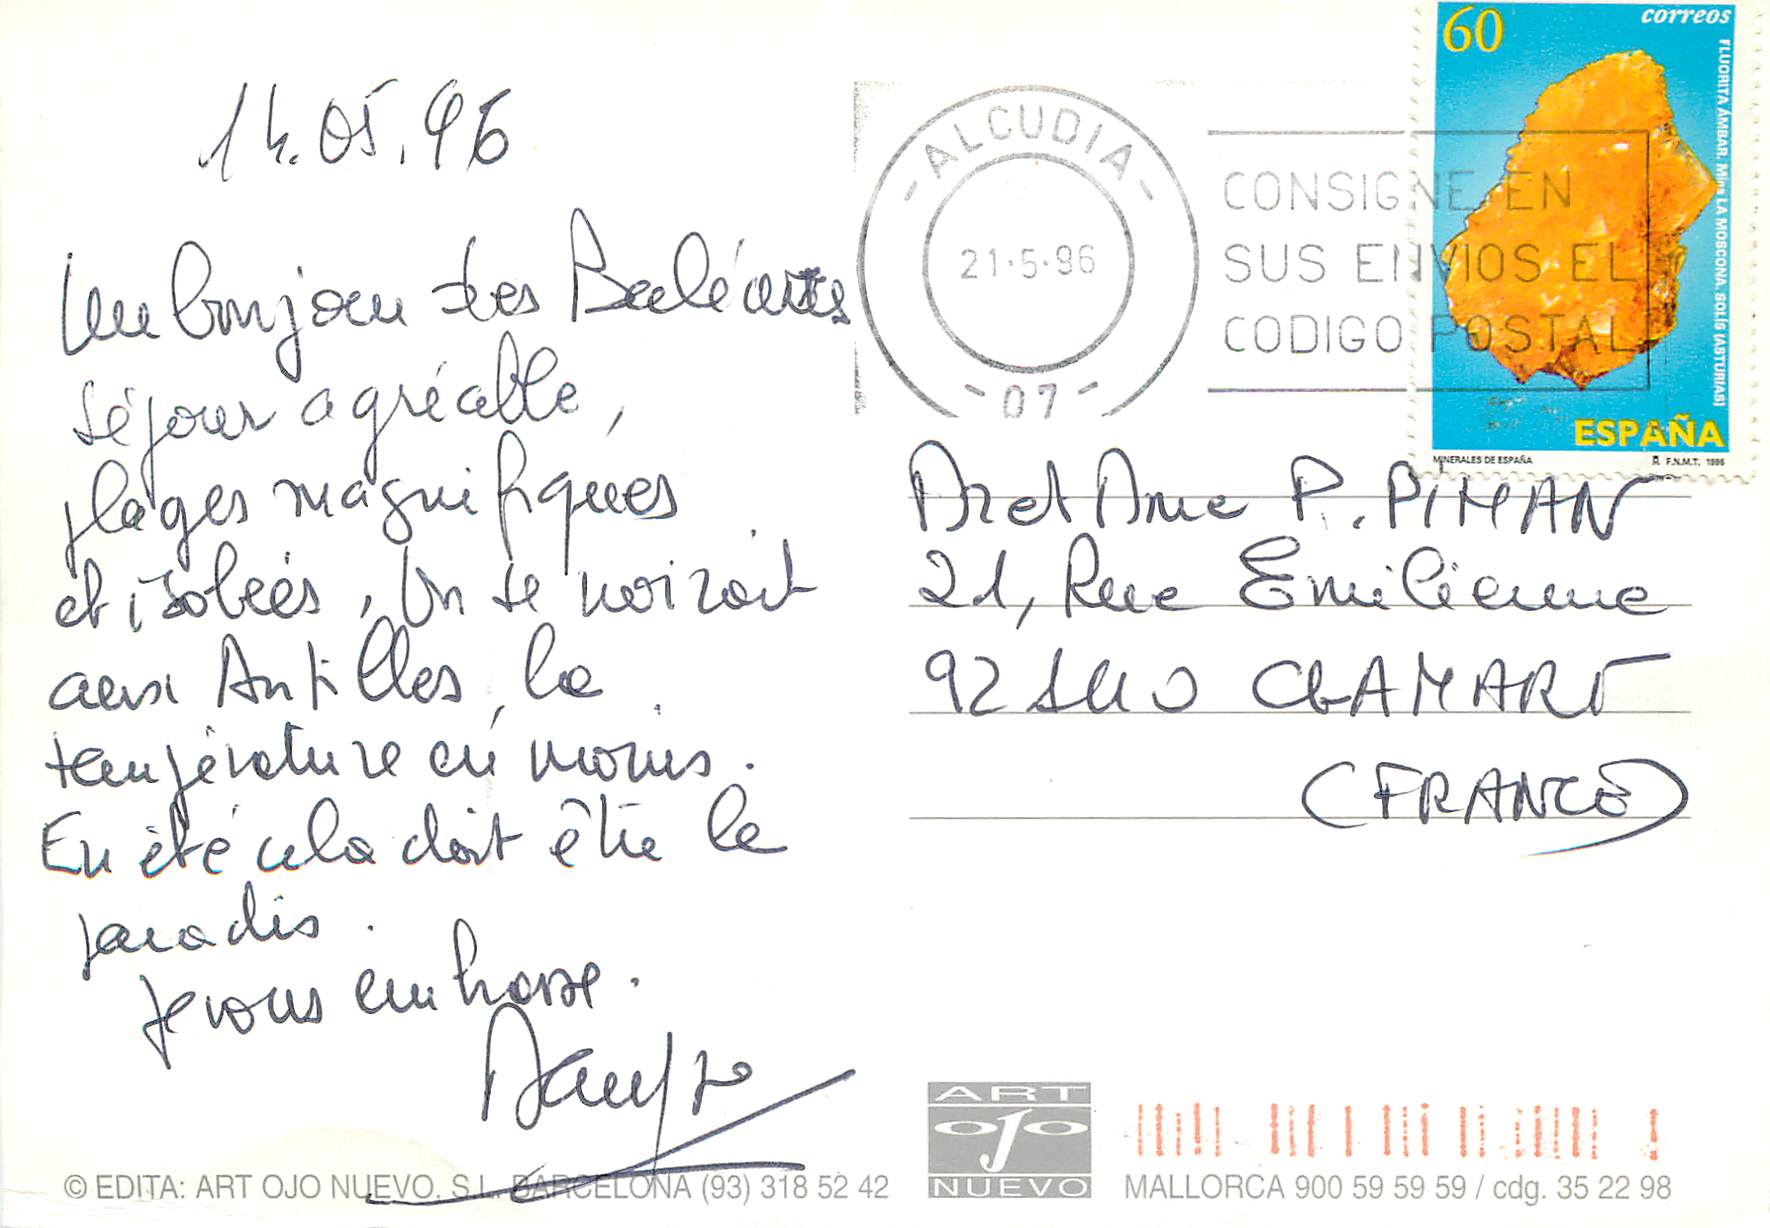 14.05.96
Un bonjour des Baléares
séjour agréable,
plages magnifiques
et isolées, On se croirait
aux Antilles, la
température en moins.
En été cela doit être le
paradis.
Je vous embrasse.
60 correos
FLUORITA ÁMBAR. Mina LA MOSCONA. SOLÍS (ASTURIAS)
ESPAÑA
MINERALES DE ESPAÑA F.N.M.T. 1996
ALCUDIA
21·5·96
07
CONSIGNE EN
SUS ENVIOS EL
CODIGO POSTAL
Mr et Mme P. PITMAN
21, Rue Emilienne
92140 CLAMART
(FRANCE)
© EDITA: ART OJO NUEVO. S.L. BARCELONA (93) 318 52 42
ART
OJO
NUEVO
MALLORCA 900 59 59 59 / cdg. 35 22 98